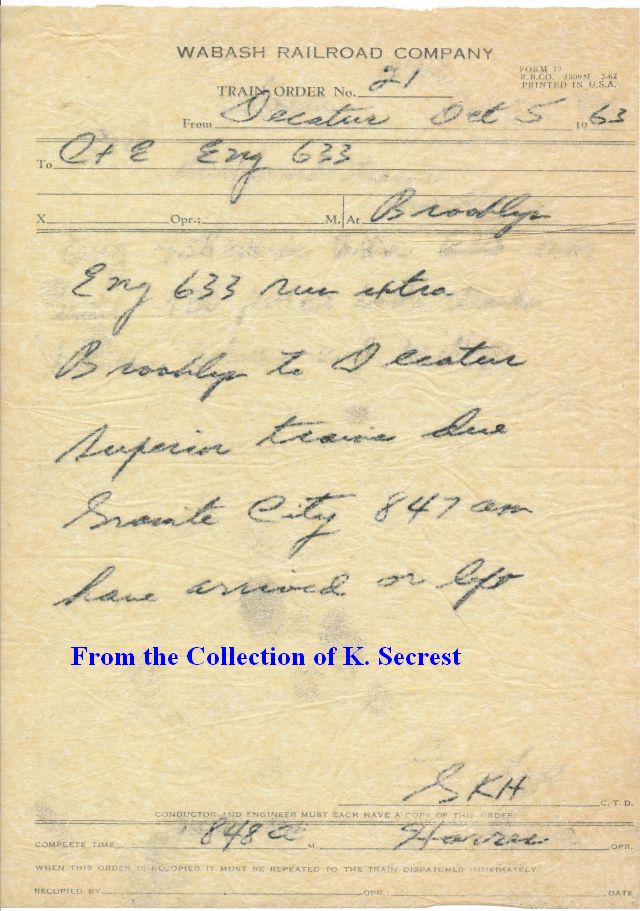 WABASH RAILROAD COMPANY
FORM 19
R.R.CO. 1800M 2-62
PRINTED IN U.S.A.
TRAIN ORDER No. 21
From Decatur Oct 5 1963
To C+E Eng 633
X Opr.; M. At Brooklyn
Eng 633 run extra
Brooklyn to Decatur
Superior trains due
Granite City 847 am
have arrived or left
From the Collection of K. Secrest
SKH C. T. D.
CONDUCTOR AND ENGINEER MUST EACH HAVE A COPY OF THIS ORDER
COMPLETE TIME 848 a M OPR.
WHEN THIS ORDER IS RECOPIED IT MUST BE REPEATED TO THE TRAIN DISPATCHER IMMEDIATELY.
RECOPIED BY OPR. DATE